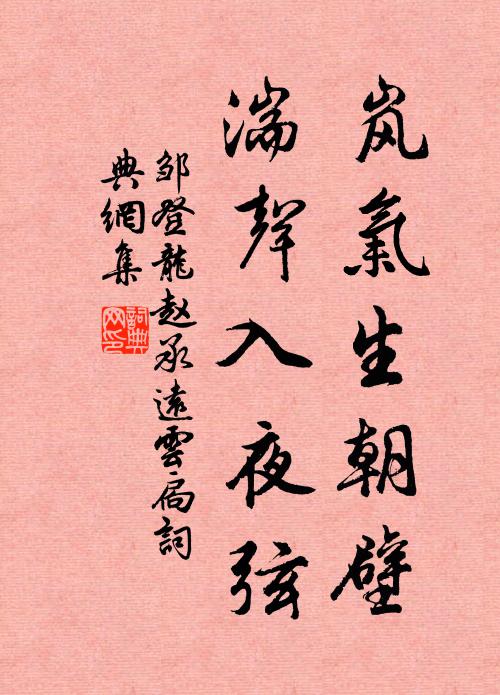 岚氣生朝壁
湍聲入夜弦
邹登龍赵承遠雲扃詞
典網集
詞典
网印